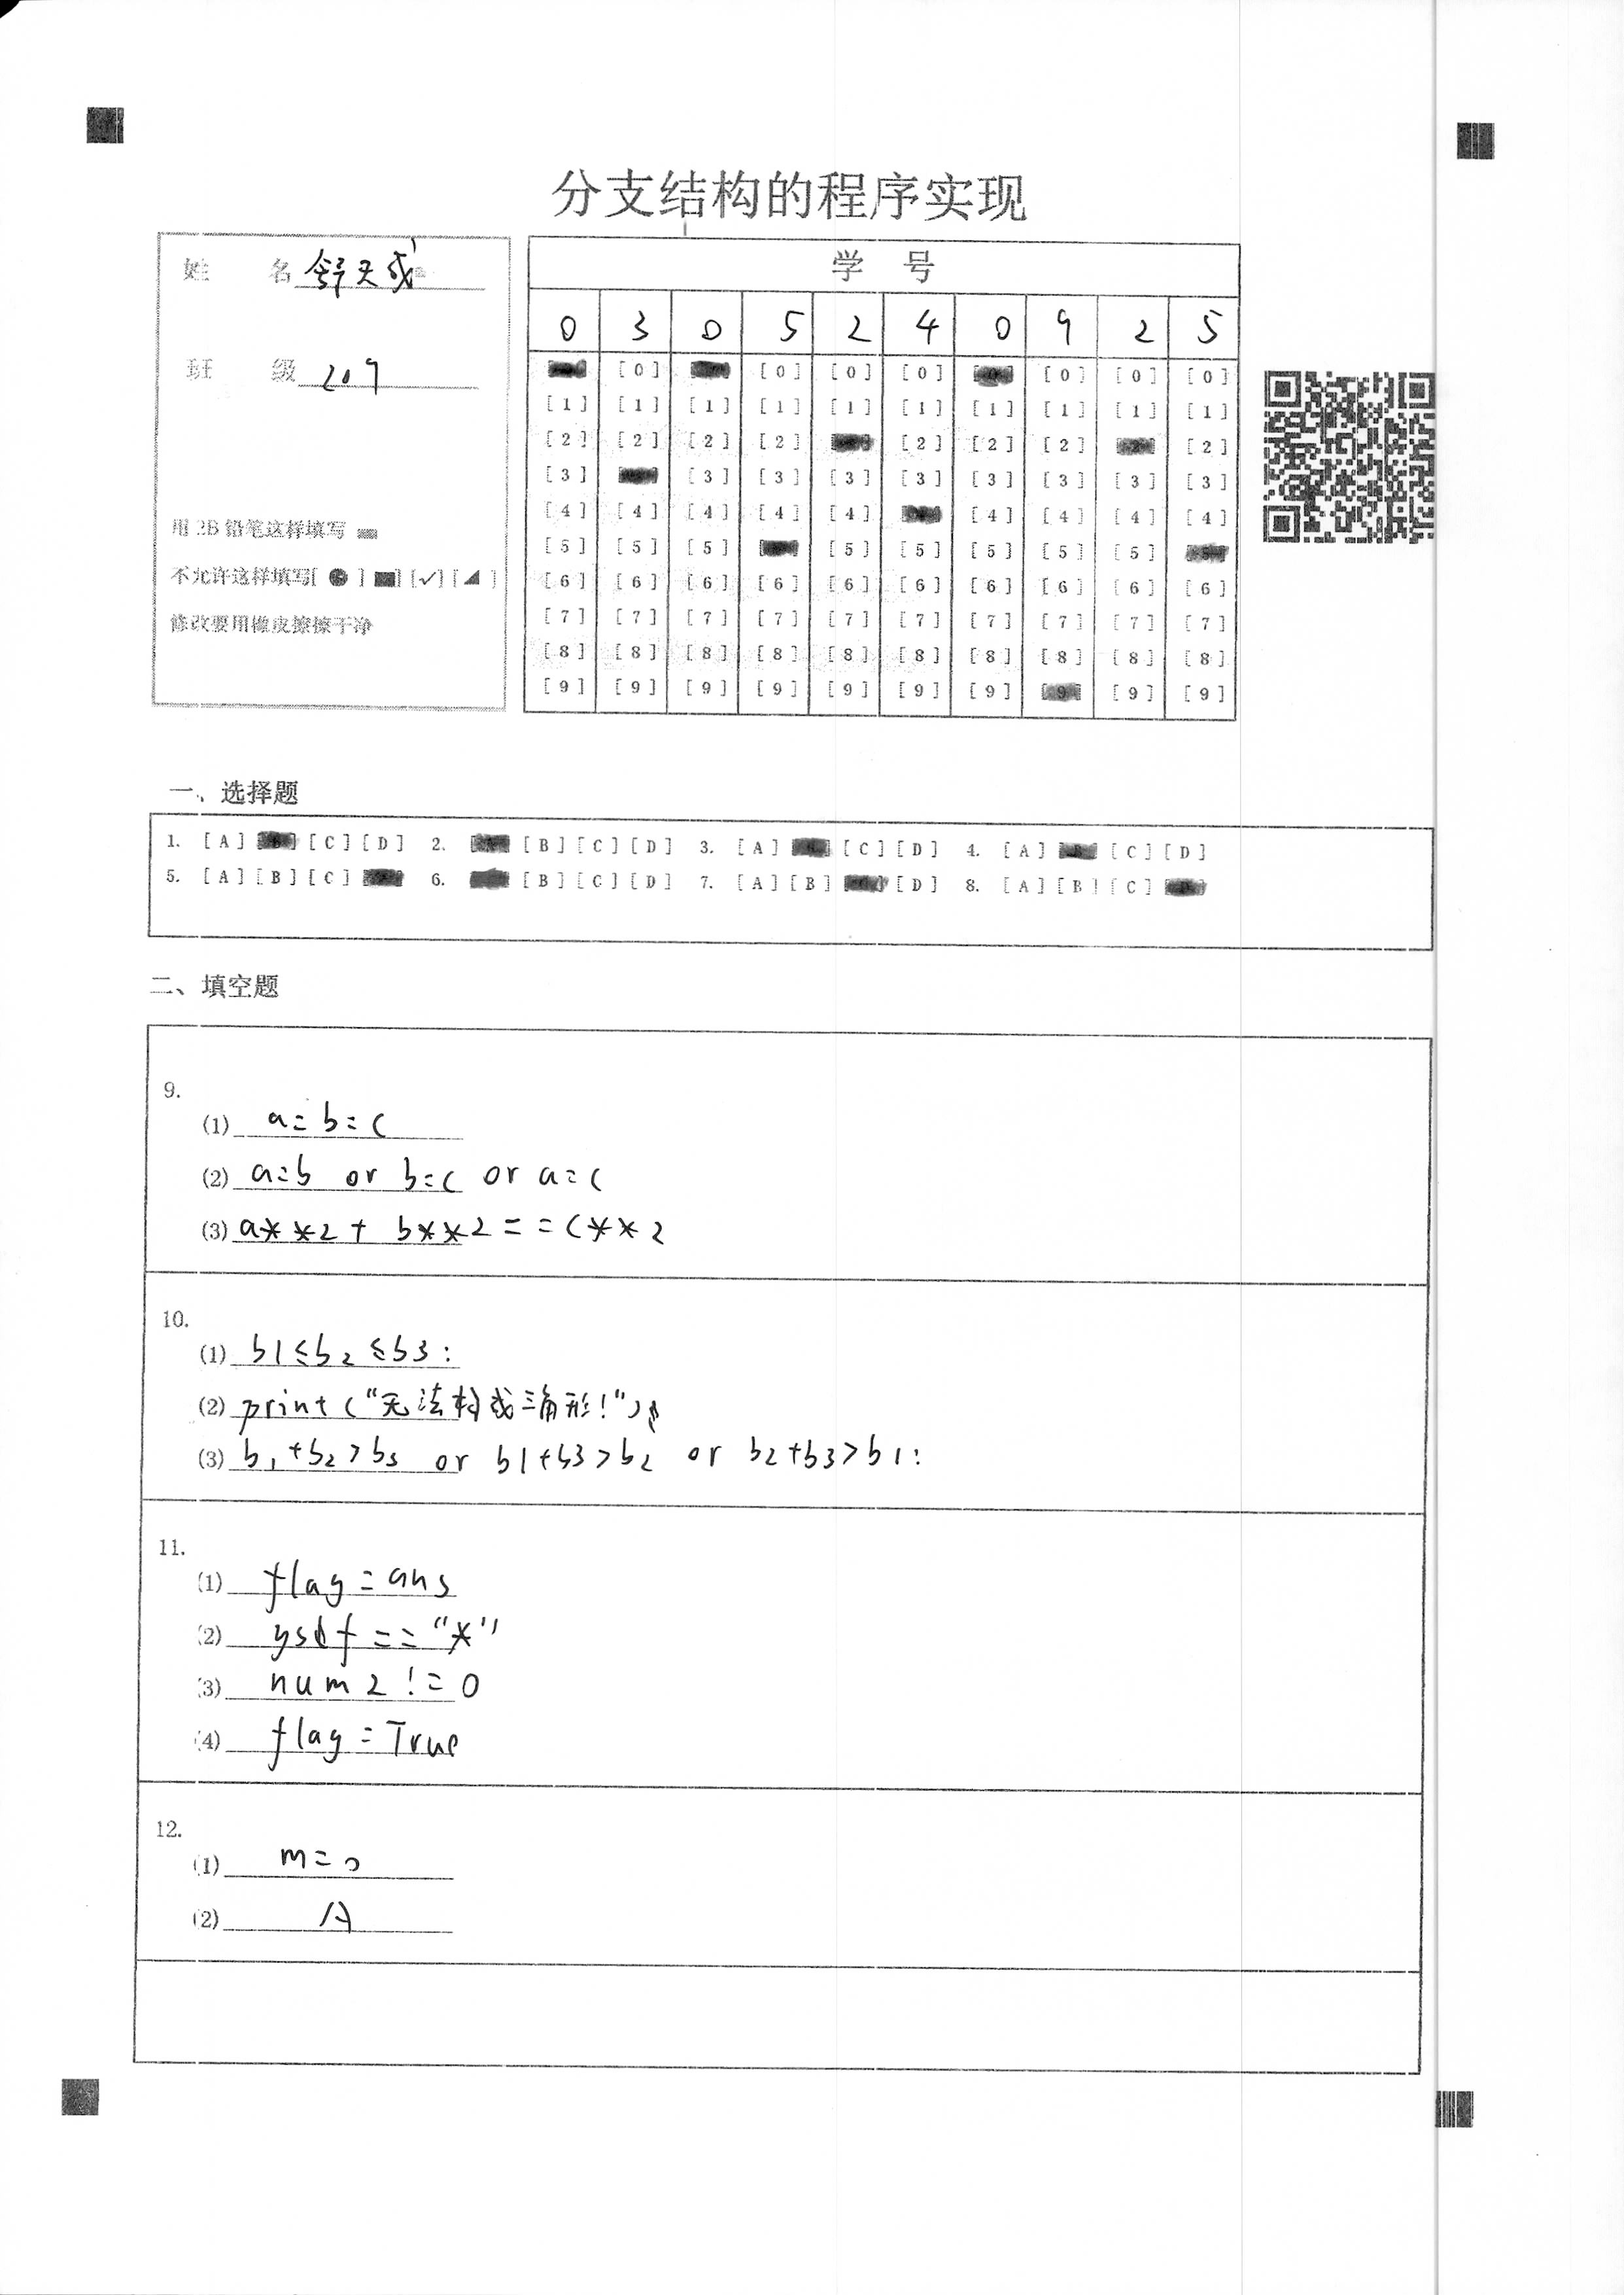 分支结构的程序实现
姓 名 舒天成
班 级 209
用2B铅笔这样填写
不允许这样填写[ ● ] [■] [✓] [◢ ]
修改要用橡皮擦擦干净
学 号
0 3 0 5 2 4 0 9 2 5
[0] [0] [0] [0] [0] [0] [0]
[1] [1] [1] [1] [1] [1] [1] [1] [1] [1]
[2] [2] [2] [2] [2] [2] [2] [2]
[3] [3] [3] [3] [3] [3] [3] [3] [3]
[4] [4] [4] [4] [4] [4] [4] [4] [4]
[5] [5] [5] [5] [5] [5] [5] [5]
[6] [6] [6] [6] [6] [6] [6] [6] [6] [6]
[7] [7] [7] [7] [7] [7] [7] [7] [7] [7]
[8] [8] [8] [8] [8] [8] [8] [8] [8] [8]
[9] [9] [9] [9] [9] [9] [9] [9] [9] [9]
一、选择题
1. [A] [C] [D] 2. [B] [C] [D] 3. [A] [C] [D] 4. [A] [C] [D]
5. [A] [B] [C] 6. [B] [C] [D] 7. [A] [B] [D] 8. [A] [B] [C]
二、填空题
9.
(1) a=b=c
(2) a=b or b=c or a=c
(3) a**2+ b**2==c**2
10.
(1) b1≤b2≤b3:
(2) print("无法构成三角形!")
(3) b1+b2>b3 or b1+b3>b2 or b2+b3>b1:
11.
(1) flag=ans
(2) ysdf=="*"
(3) num2!=0
(4) flag=True
12.
(1) m=0
(2) A